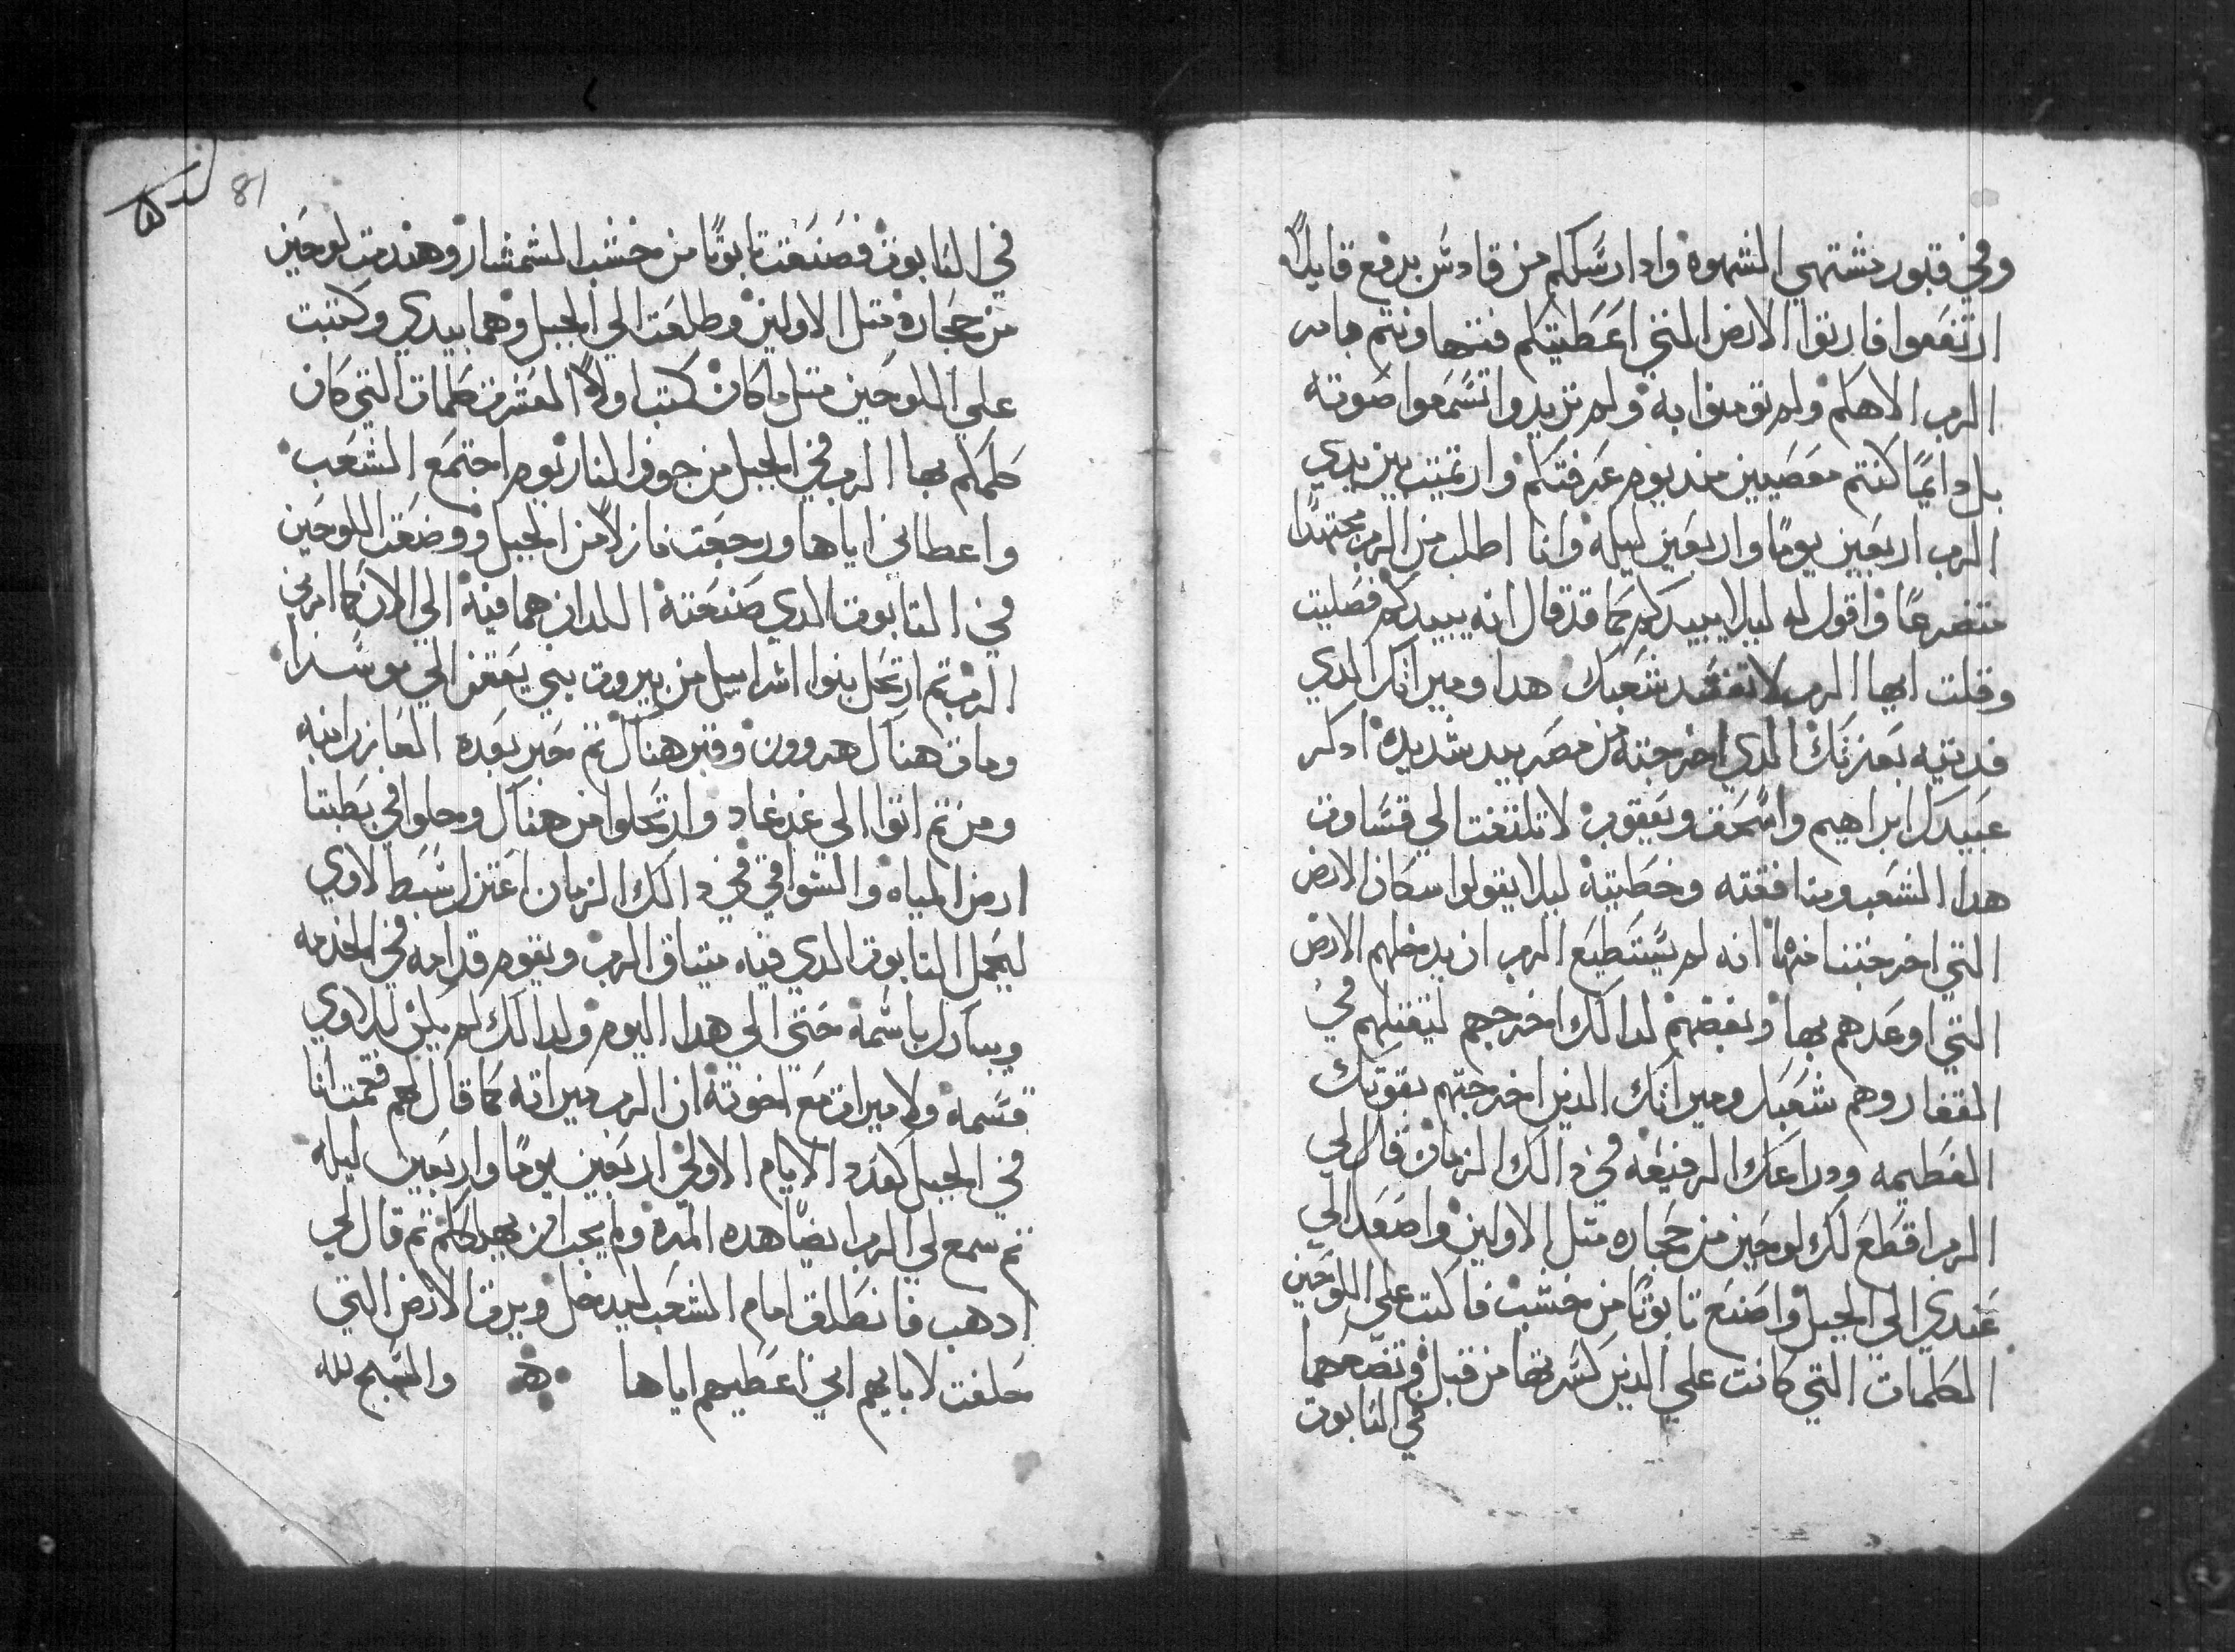 وفي قبور مشتهي الشهوه وادا رسلكم من قادس برفع قايلاً
ارتفعوا فارتوا الارض التي اعطيتكم فننها ونتم بامر
الرب الاهكم ولم تومنوا به ولم تريدوا تسمعوا صوته
بل دايمًا كنتم معصيين مند يوم عرفتكم وارتميت بين يدي
الرب اربعين يومًا واربعين ليله وانا اطلب من الرب مجتهدًا
متضرعًا واقول له ليلا يبيدكم كما قد قال انه يبيدكم فصليت
وقلت ايها الرب لا تفسد شعبك هدا وميراتك الدي
فديته بعزتك الدي اخرجته من مصر بيد شديده ادكر
عبيدك ابراهيم واسحق ويعقوب لا تلتفت الي قساوت
هدا الشعب ومنافقته وخطيته ليلا يقولوا سكان الارض
التي اخرجتنا منها انه لم يستطيع الرب ان يدخلهم الارض
التي اوعدهم بها وبغضهم لدالك اخرجهم ليقتلهم في
القفار وهم شعبك وميراتك الدين اخرجتهم بقوتك
العظيمه ودراعك الرفيعه في دالك الزمان قال لي
الرب اقطع لك لوحين من حجاره متل الاولين واصعد الي
عندي الي الجبل واصنع تابوتًا من خشب فاكتب علي اللوحين
الكلمات التي كانت علي الدين كسرتهما من قبل وتضعهما
في التابوت
في التابوت فصنعت تابوتًا من خشب الشمشار وهندمت لوحين
من حجاره متل الاولين وطلعت الي الجبل وهما بيدي وكتبت
علي اللوحين متل ما كان كتب اولاً العشرت كلمات التي كان
كلمكم بها الرب في الجبل من جوف النار يوم اجتمع الشعب
واعطاني اياها ورجعت نازلاً من الجبل ووضعت اللوحين
في التابوت الدي صنعته اللدان هما فيه الي الان كما امرني
الرب تم ارتحل بنوا اسراييل من بيروت بني يعقن الي موسدا
ومات هناك هروون وقبر هناك تم حبر بعده العازر ابنه
ومن تم اتوا الي غدغاد وارتحلوا من هناك وحلوا في يطبتا
ارض المياه والسواقي في دالك الزمان اعتزل سبط لاوي
ليحمل التابوت الدي فيه ميتاق الرب ويقوم قدامه في الخدمه
ويبارك باسمه حتي الي هدا اليوم ولدالك لم يكن للاوي
قسمه ولا ميرات مع اخوته ان الرب ميراته كما قال لهم فقمت انا
في الجبل كعدد الايام الاولي اربعين يومًا واربعين ليله
تم سمع لي الرب ايضًا هده المره ولم يحب ان يهلككم تم قال لي
ادهب فانطلق امام الشعب ليدخل ويرت الارض التي
حلفت لابايهم اني اعطيهم اياها والسبح لله
81